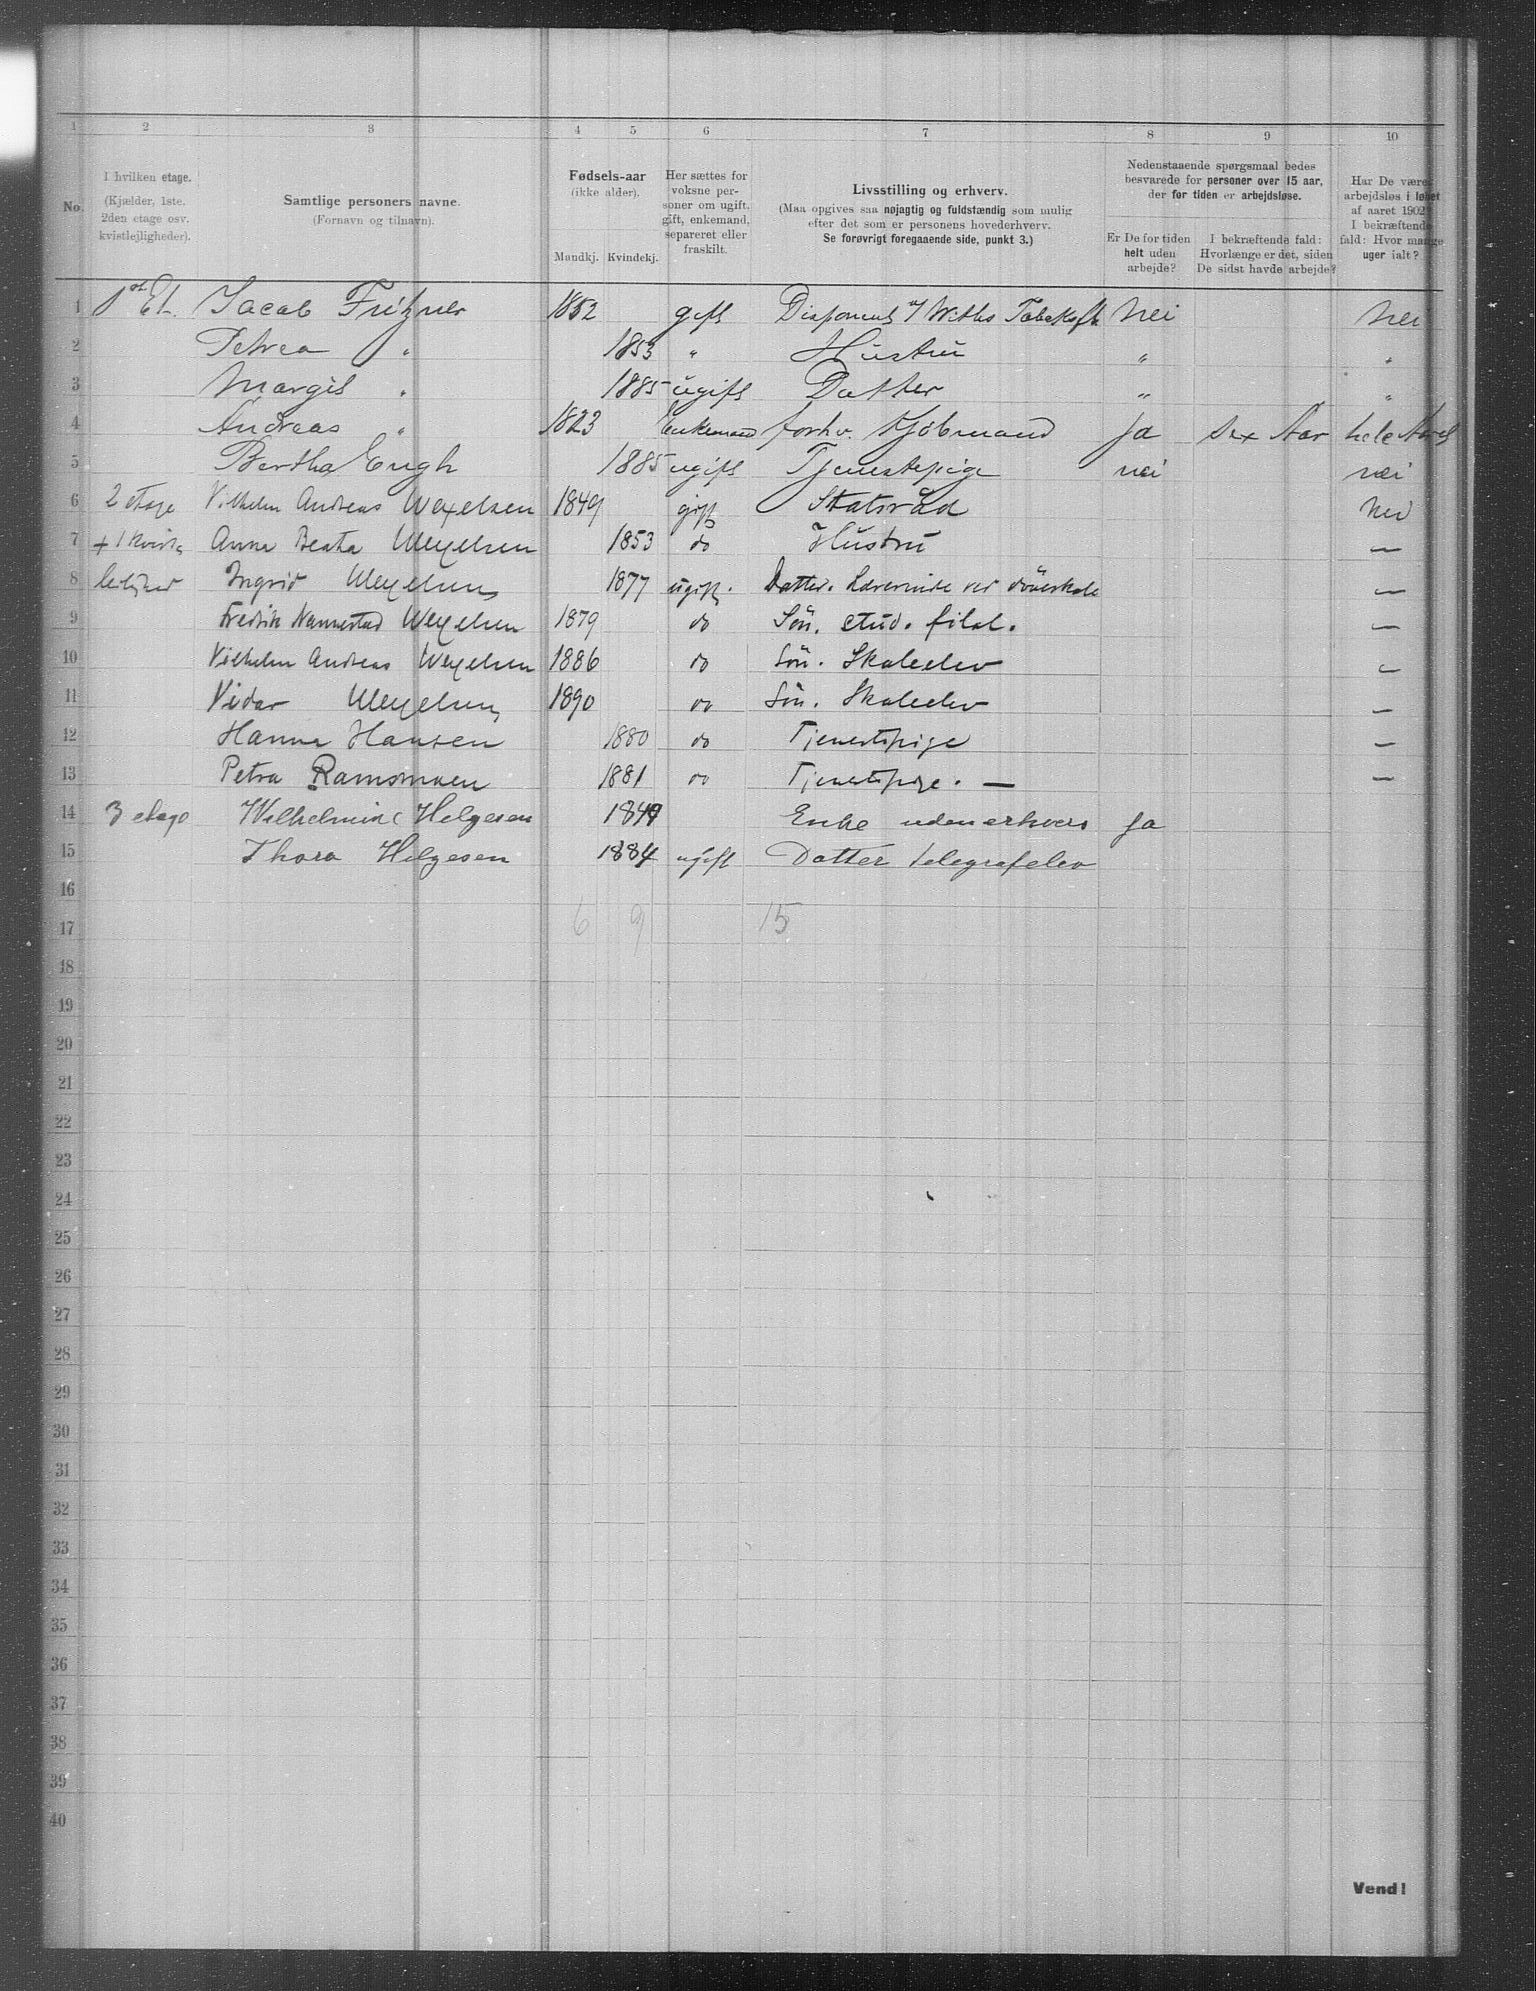 1 2 3 4 5 6 7 8 9 10
No.
I hvilken etage.
(Kjælder, 1ste,
2den etage osv.
kvistlejligheder).
Samtlige personers navne.
(Fornavn og tilnavn).
Fødsels-aar
(ikke alder).
Mandkj. Kvindekj.
Her sættes for
voksne per-
soner om ugift,
gift, enkemand,
separeret eller
fraskilt.
Livsstilling og erhverv.
(Maa opgives saa nøjagtig og fuldstændig som mulig
efter det som er personens hovederhverv.
Se forøvrigt foregaaende side, punkt 3.)
Nedenstaaende spørgsmaal bedes
besvarede for personer over 15 aar,
der for tiden er arbejdsløse.
Er De for tiden
helt uden
arbejde?
I bekræftende fald:
Hvorlænge er det, siden
De sidst havde arbejde?
Har De være
arbejdsløs i løbet
af aaret 1902?
I bekræftende
fald: Hvor mange
uger ialt?
1 1st Et. Jacob Fritzner 1852 gift Disponent v/ Withs Tobaksfb. Nei Nei
2 Petrea " 1853 " Hustru " "
3 Margit " 1885 ugift Datter " "
4 Andreas " 1823 Enkemand forhv. Kjøbmand Ja sex Aar hele Aaret
5 Bertha Engh 1885 ugift Tjenestepige nei nei
6 2 etage Vilhelm Andreas Wexelsen 1849 gift Statsråd Nei
7 + 1 kvist Anna Beata Wexelsen 1853 do Hustru —
8 Ingrid Wexelsen 1877 ugift. Datter. Lærerinde ved døveskole —
9 Fredrik Nannestad Wexelsen 1879 do Sön. stud. filol. —
10 Vilhelm Andreas Wexelsen 1886 do Sön. Skoleelev —
11 Vidar Wexelsen 1890 do Sön. Skoleelev —
12 Hanna Hansen 1880 do Tjenestpige —
13 Petra Ramsmoen 1881 do Tjenestpige. — —
14 3 etage Wilhelmine Helgesen 1849 Enke uden erhverv Ja
15 Thora Helgesen 1884 ugift Datter telegrafelev
16
6 9 15
17
18
19
20
21
22
23
24
25
26
27
28
29
30
31
32
33
34
35
36
37
38
39
40
Vend!